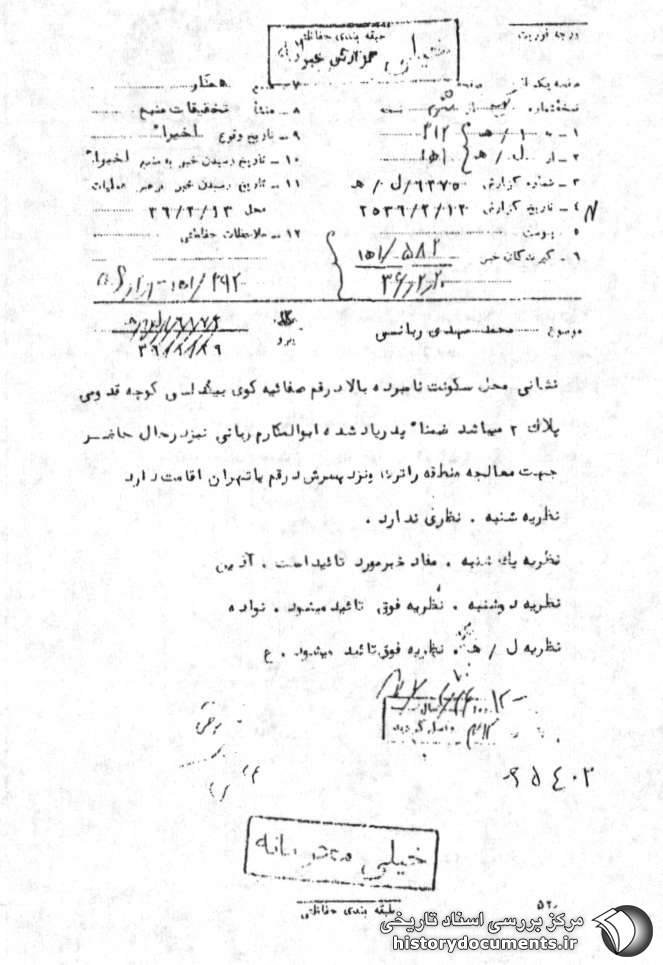 درجه فوریت
طبقه بندی حفاظتی
خیلی
گزارش خبر
صفحه یک از صفحه
نسخه شماره یک از نسخه
۱ - به ۱۰ / هـ ۳۱۲
۲ - از ل / هـ ۱۵۱
۳ - شماره گزارش ۶۲۷۵ / ل / هـ
۴ - تاریخ گزارش ۲۵۳۶/۲/۱۳
۵ - پیوست
۶ - گیرندگان خبر
۱۵۱/۵۸۲
۷ - منبع همنار
۸ - منشأ تحقیقات منبع
۹ - تاریخ وقوع اخیراً
۱۰ - تاریخ رسیدن خبر به منبع اخیراً
۱۱ - تاریخ رسیدن خبر به رهبر عملیات
محل ۳۶/۲/۱۳
۱۲ - ملاحظات حفاظتی
موضوع محمد مهدی ربانسی
نشانی محل سکونت نامبرده بالا در قم صفائیه کوی بیگدلی کوچه قدوسی
پلاك ۲ میباشد ضمناً پدر یاد شده ابوالمکارم ربانی نیز در حال حاضر
جهت معالجه منطقه را ترك ونزد پسرش در قم یا تهران اقامت دارد
نظریه شنبه . نظری ندارد .
نظریه یك شنبه . مفاد خبر مورد تائید است . آذین
نظریه دوشنبه . نظریه فوق تائید میشود . نواده
نظریه ل / هـ . نظریه فوق تائید میشود . ع
۹۵۴۰۲
خیلی محرمانه
طبقه بندی حفاظتی
۵۲۰
مرکز بررسی اسناد تاریخی
historydocuments.ir